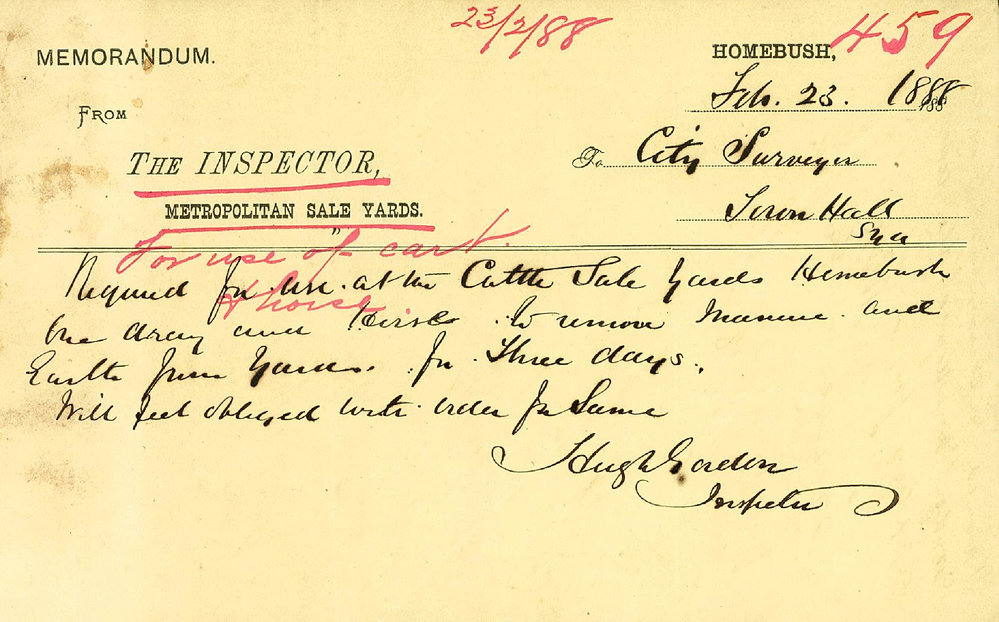 23/2/88
459
MEMORANDUM.
HOMEBUSH,
Feb. 23. 1888
FROM
THE INSPECTOR,
To City Surveyor
METROPOLITAN SALE YARDS.
Town Hall
Syd
For use of cart
& horse
Required for use at the Cattle Sale Yards Homebush
One dray and Horse to remove Manure and
Earth from Yards. for Three days.
Will feel obliged with order for Same
Hugh Gordon
Inspector